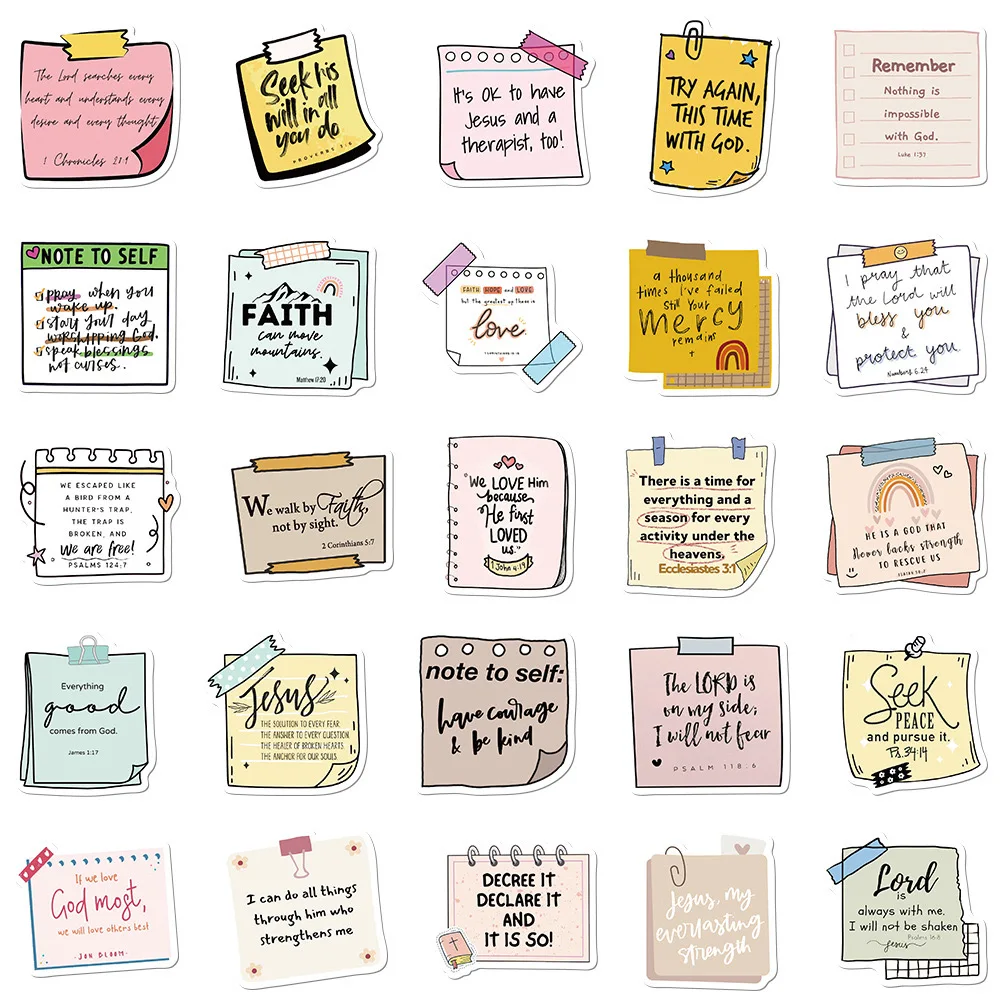 The Lord searches every
heart and understands every
desire and every thought
1 Chronicles 28:9
Seek his
will in all
you do
PROVERBS 3:6
It's OK to have
Jesus and a
therapist, too!
TRY AGAIN,
THIS TIME
WITH GOD.
Remember
Nothing is
impossible
with God.
Luke 1:37
NOTE TO SELF
pray when you
wake up.
start your day
worshipping God.
speak blessings
not curses.
FAITH
can move
mountains.
Matthew 17:20
FAITH HOPE and LOVE
but the greatest of these is
love
1 CORINTHIANS 13:13
a thousand
times I've failed
Still Your
Mercy
remains
I pray that
the Lord will
bless you
&
protect you
Numbers 6:24
WE ESCAPED LIKE
A BIRD FROM A
HUNTER'S TRAP.
THE TRAP IS
BROKEN, AND
We are free!
PSALMS 124:7
We walk by Faith,
not by sight.
2 Corinthians 5:7
"We LOVE Him
because
He first
LOVED
us."
1 John 4:19
There is a time for
everything and a
season for every
activity under the
heavens.
Ecclesiastes 3:1
HE IS A GOD THAT
Never lacks strength
TO RESCUE US
Everything
good
comes from God.
James 1:17
Jesus
THE SOLUTION TO EVERY FEAR
THE ANSWER TO EVERY QUESTION
THE HEALER OF BROKEN HEARTS
THE ANCHOR FOR OUR SOULS
note to self:
have courage
& be kind
The LORD is
on my side;
I will not fear
PSALM 118:6
Seek
PEACE
and pursue it.
Ps. 34:14
If we love
God most,
we will love others best
- JON BLOOM -
I can do all things
through him who
strengthens me
DECREE IT
DECLARE IT
AND
IT IS SO!
Jesus, my
everlasting
strength
Lord
is
always with me.
I will not be shaken
Psalms 16:8
Jesus